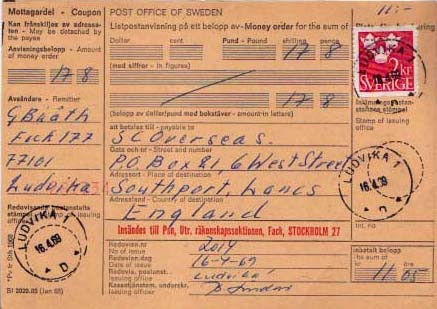 Mottagardel - Coupon
Kan frånskiljas av adressaten - May be detached by the payee
Anvisningsbelopp - Amount of money order
17 8
Avsändare - Remitter
G Bååth
Fack 177
77101
Ludvika
Redovisande postanstalts stämpel
Stamp of issuing office
LUDVIKA 1
16.4.69
D
Bl 2020.05 (Jan 68)
POST OFFICE OF SWEDEN
11:-
Listpostanvisning på ett belopp av - Money order for the sum of
Dollar
cent.
Pund - Pound
shilling
pence
17 8
(med siffror - in figures)
17 8
(belopp av dollar/pund med bokstäver - amount in letters)
att betalas till - payable to
S L Overseas.
Gata och nr - Street and number
P.O. Box 21, 6 West Street
Adressort - Place of destination
Southport, Lancs
Adressland - Country of destination
England
Insändes till Pan, Utr. räkenskapssektionen, Fack, STOCKHOLM 27
Redovisn.nr
No of issue
2014
Redovisn.dag
Date of issue
16-4-69
Redovis. postanst.
issuing office
Ludvika 1
Kassatjänstem. underskr.
Issuing officer
LUDVIKA 1
16.4.69
D
2 kr
SVERIGE
Stamp of issuing office
LUDVIKA 1
16.4.69
D
Int. no
Inbetalt belopp
The sum of
kr
11 05